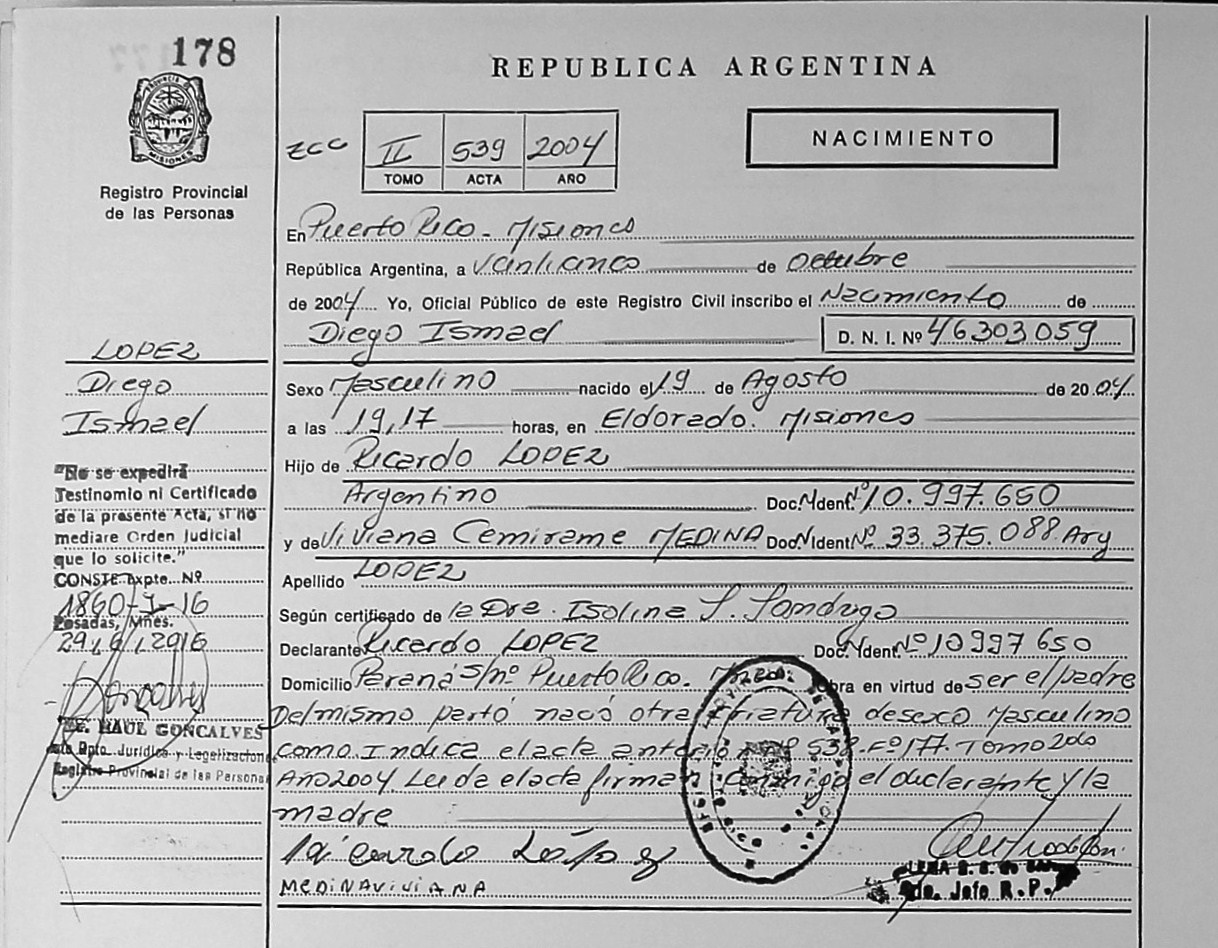 178
REPUBLICA ARGENTINA
PROVINCIA DE
MISIONES
Registro Provincial
de las Personas
ZCC II 539 2004
TOMO ACTA AÑO
NACIMIENTO
En Puerto Rico - Misiones
República Argentina, a Veinticinco de Octubre
de 2004 Yo, Oficial Público de este Registro Civil inscribo el Nacimiento de
Diego Ismael D. N. I. Nº 46303.059
LOPEZ
Diego
Ismael
Sexo Masculino nacido el 19 de Agosto de 2004
a las 19,17 horas, en Eldorado. Misiones
Hijo de Ricardo LOPEZ
Argentino Doc. Ident. Nº 10.997.650
y de Viviana Cemirame MEDINA Doc. Ident. Nº 33.375.088. Arg
Apellido LOPEZ
Según certificado de la Dra. Isolina
Declarante Ricardo LOPEZ Doc. Ident. Nº 10997650
Domicilio Paraná s/nº Puerto Rico. Obra en virtud de ser el padre
Del mismo partó nació otra criatura de sexo Masculino
como Indica el acta anterior Nº 538. Fº 177. Tomo 2do
AÑO 2004. Leida el acta firman conmigo el declarante y la
madre
"No se expedirá
Testinomio ni Certificado
de la presente Acta, si no
mediare Orden Judicial
que lo solicite."
CONSTE Expte. Nº
1860 16
Posadas, Mnes.
29/6/2016
RAUL GONCALVES
Dpto. Jurídica y Legalizaciones
Registro Provincial de las Personas
Ricardo López
MEDINA VIVIANA
Jefe R. P.